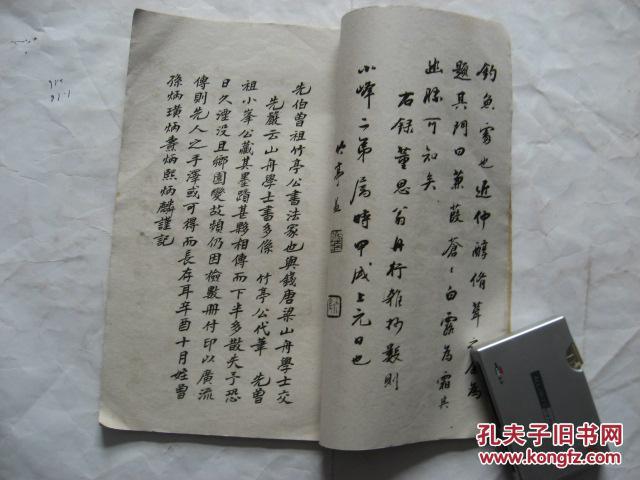 釣魚處也近仲醇脩葺
題其門曰蒹葭蒼〻白露為霜其
幽勝可知矣
右錄董思翁舟行雜抄數則
小峰二弟屬時甲戌上元日也
竹亭
先伯曾祖竹亭公書法家也與錢唐梁山舟學士交
先嚴云山舟學士書多條 竹亭公代筆 先曾
祖小峯公藏其墨蹟甚夥相傳而下半多散失予恐
日久湮沒且鄉園變故頻仍因檢數冊付印以廣流
傳則先人之手澤或可得而長存耳辛酉十月姪曾
孫炳璜炳燾炳熙炳麟謹記
孔夫子旧书网
www.kongfz.com